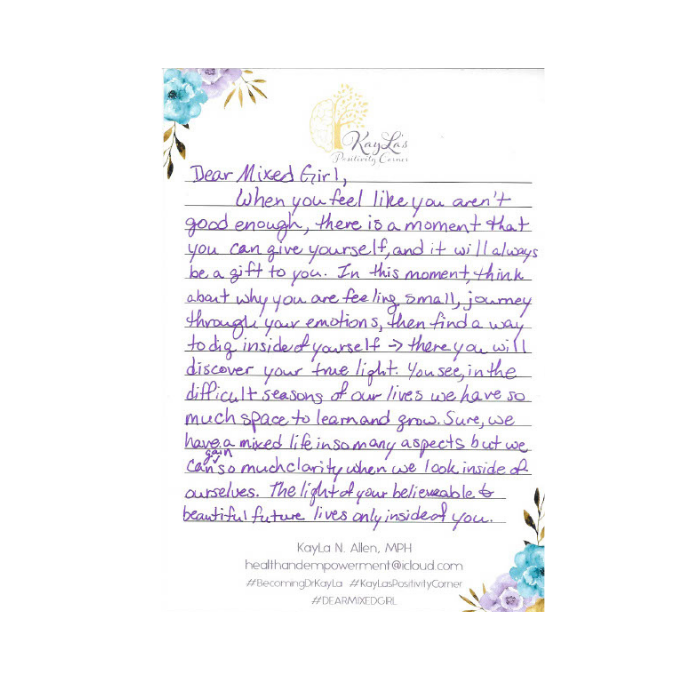 KayLa's
Positivity Corner
Dear Mixed Girl,
When you feel like you aren't
good enough, there is a moment that
you can give yourself, and it will always
be a gift to you. In this moment, think
about why you are feeling small, journey
through your emotions, then find a way
to dig inside of yourself → there you will
discover your true light. You see, in the
difficult seasons of our lives we have so
much space to learn and grow. Sure, we
have a mixed life in so many aspects but we
can gain so much clarity when we look inside of
ourselves. The light of your believeable &
beautiful future lives only inside of you.
KayLa N. Allen, MPH
healthandempowerment@icloud.com
#BecomingDrKayLa #KayLasPositivityCorner
#DEARMIXEDGIRL